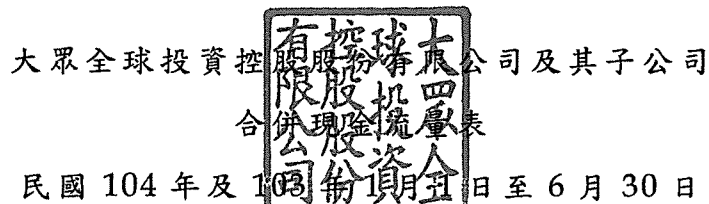 大眾全球投資控股股份有限公司及其子公司
合併現金流量表
民國 104 年及 103 年 1 月 1 日至 6 月 30 日
大眾全球投資控股股份有限公司